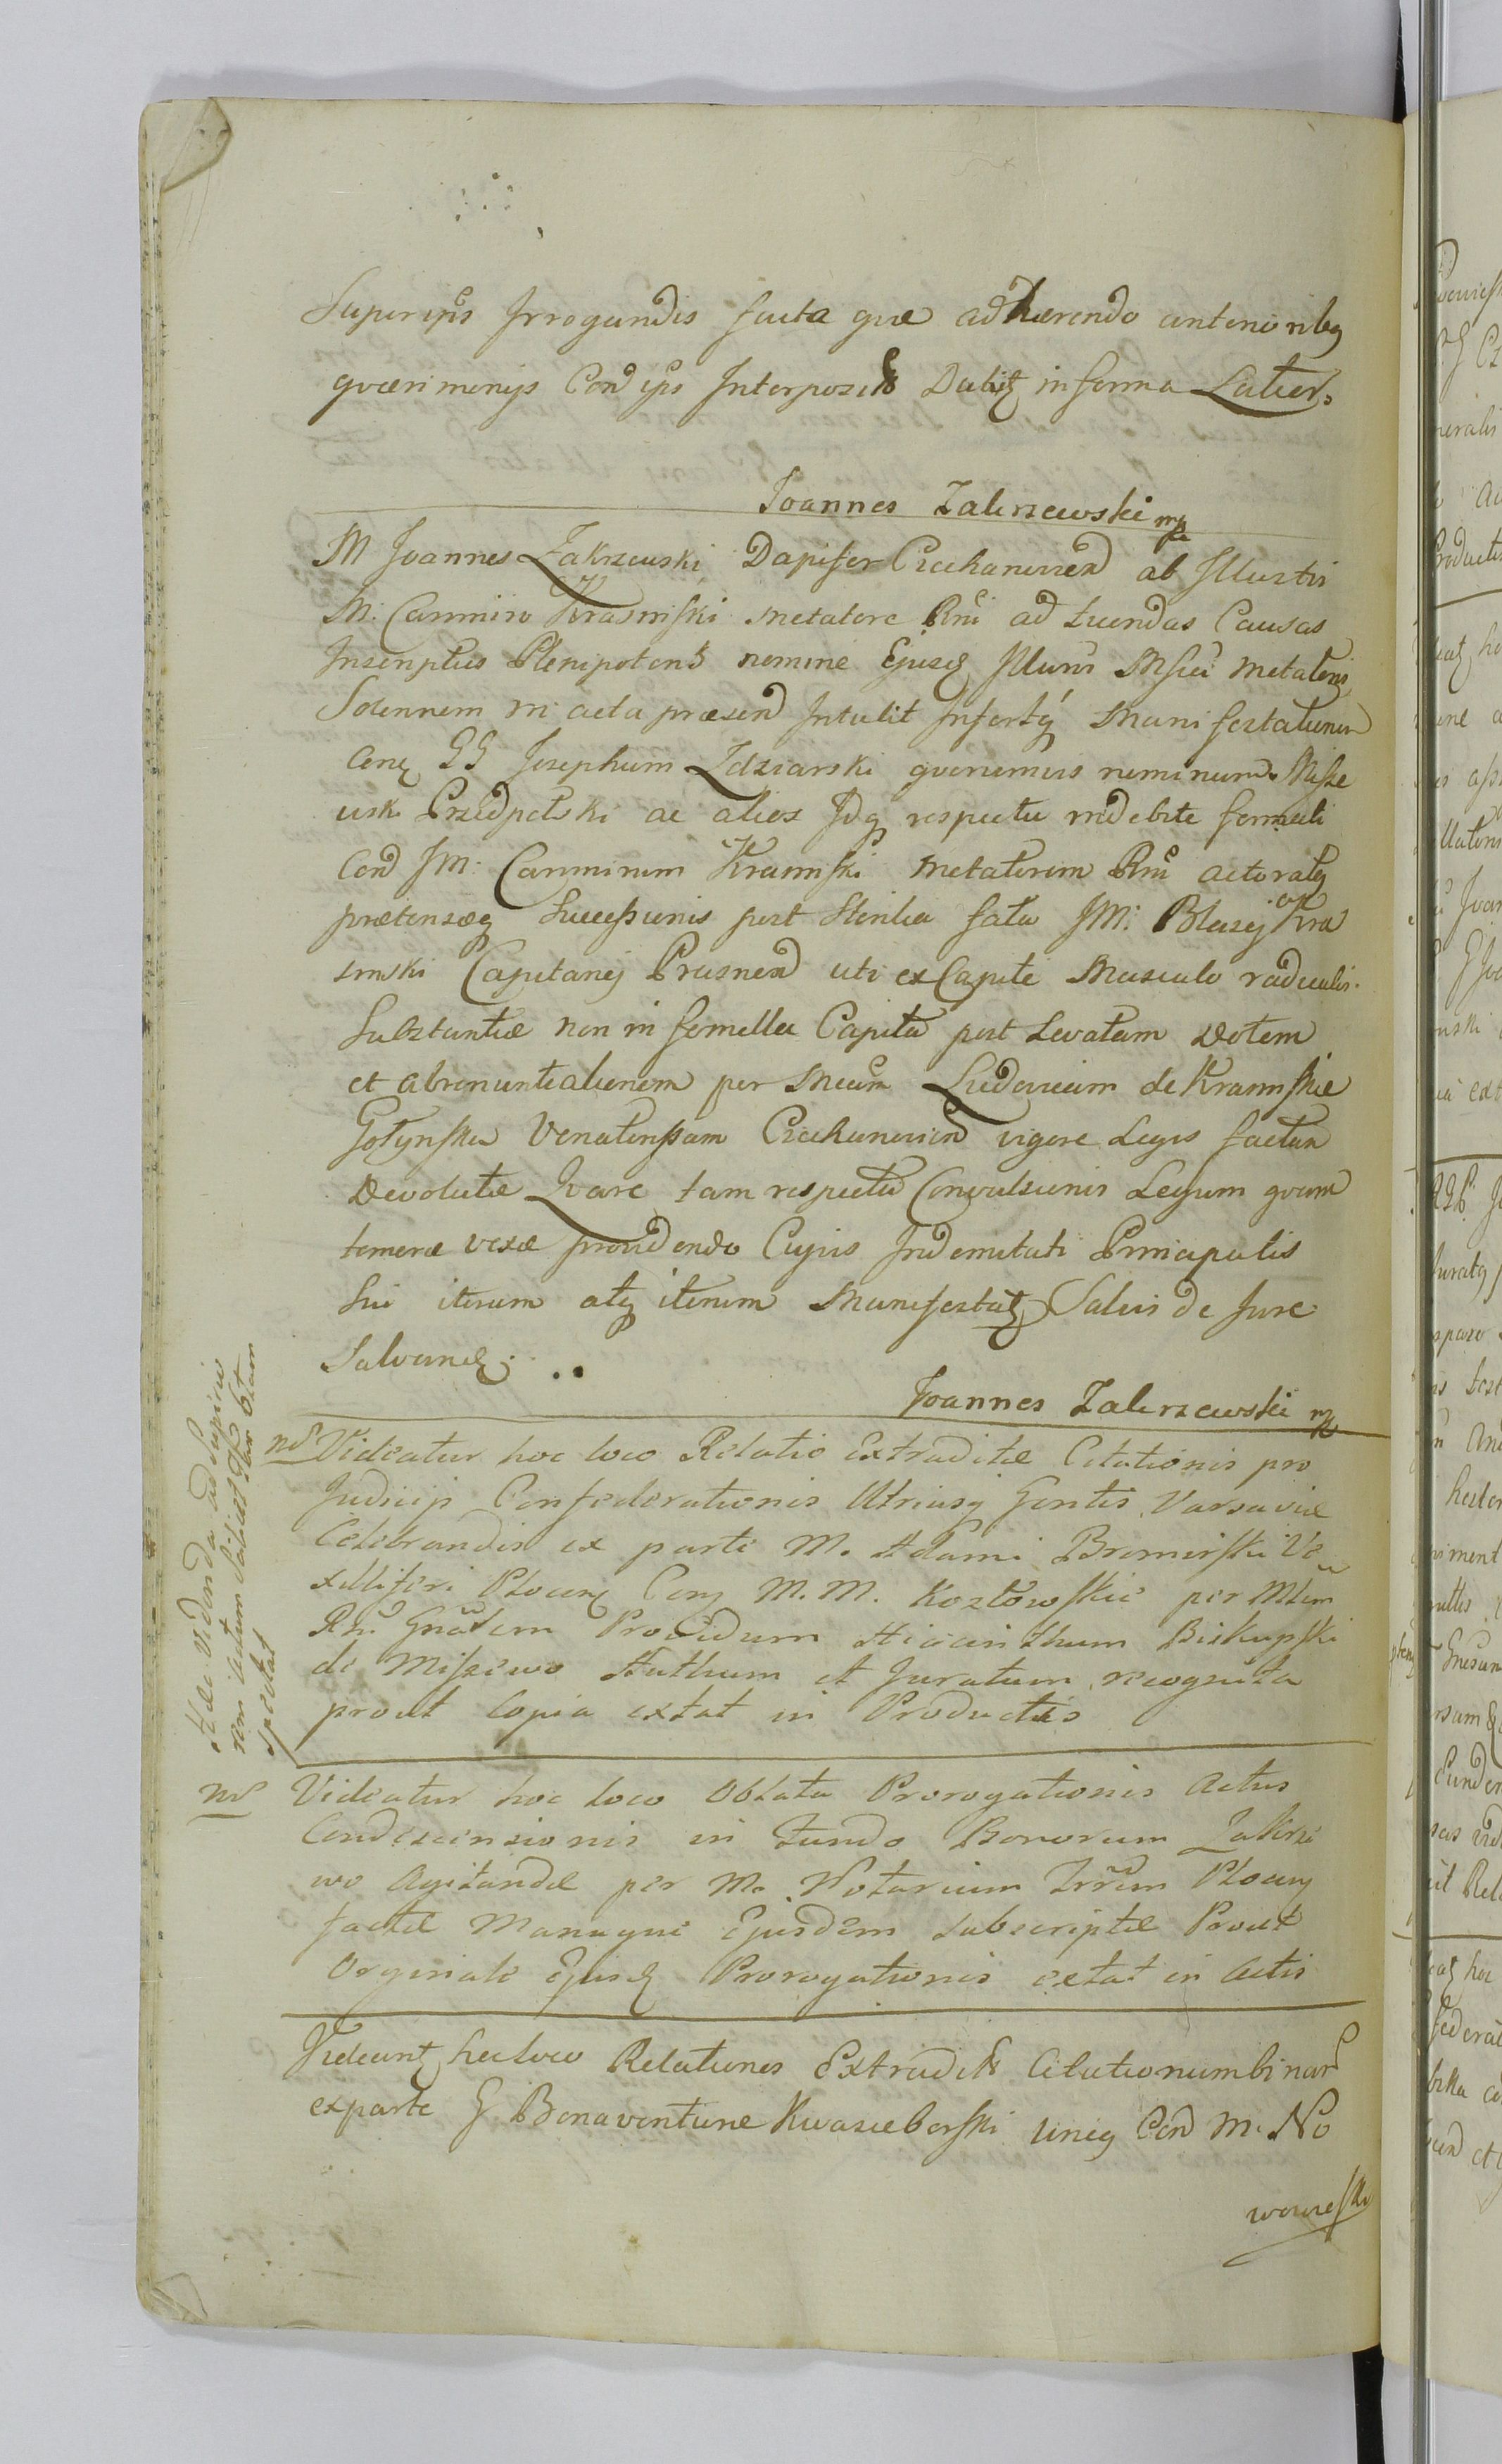 Super ips Irrogandis facta quæ adhærendo anterioribq
quærimonijs Cond ips Interpositis Datq in forma Latiori
Joannes Zakrzewski mp
M Joannes Zakrzewski Dapifer Ciechanovien ab Illustri
M: Casimiro Krasinski Metatore Rni ad tuendas Causas
Inscriptus Plenipotens nomine Ejusq Illuris Mfici Metatoris
Solennem in acta præsend Intulit Infertq Manifestationem
Conq GG Josephum Zdziarski
Przedpelski ac alios Idq respectu indebite formati
Cond JM: Casimirum Krasinski Metatorem Rni actoratq
prætensæq Successionis post Sterilia fata JM: Blasij Kra
sinski Capitanej Prasnend uti ex Capite Masculo radicalis
Substantiæ non in femellea Capita post Levatam Dotem
et abrenuntiationem per Mcam Ludovicam de Krasinskie
Gołynska Venatorissam Ciechanovien vigore Legis factam
Devolutæ Qvare tam respectu Convulsionis Legum qvam
temeræ vexæ providendo Cujus Indemnitati Principalis
Sui iterum atq iterum Manifestatq Salvis de Jure
Salvandq
Joannes Zakrzewski mp
Hæc videnda ad Superio
rem
spectat
nd Videatur hoc loco Relatio Extraditæ Citationis pro
Judicijs Confederationis Utriusq Gentis Varsaviæ
Celebrandis ex parte M. Adami Bromirski Ve
xilliferi Plocenq Conq M.M. Kozłowskie per Mtem
Rni Gnalem Providum Hiacinthum Biskupski
de Miszewo Authum et Juratum recognita
prout Copia extat in Productis
nd Videatur hoc loco Oblata Prorogationis Actus
Condescensionis in fundo Bonorum Zakrze
wo Agitandæ per M. Notarium Trrem Plocenq
factæ Manuque Ejusdem Subscriptæ Prout
Orginale Ejusq Prorogationis extat in Actis
Videantq hoc loco Relationes Extraditæ Citationum binar
ex parte G Bonaventuræ Kwasieborski unicq Cond M. No
wowieski